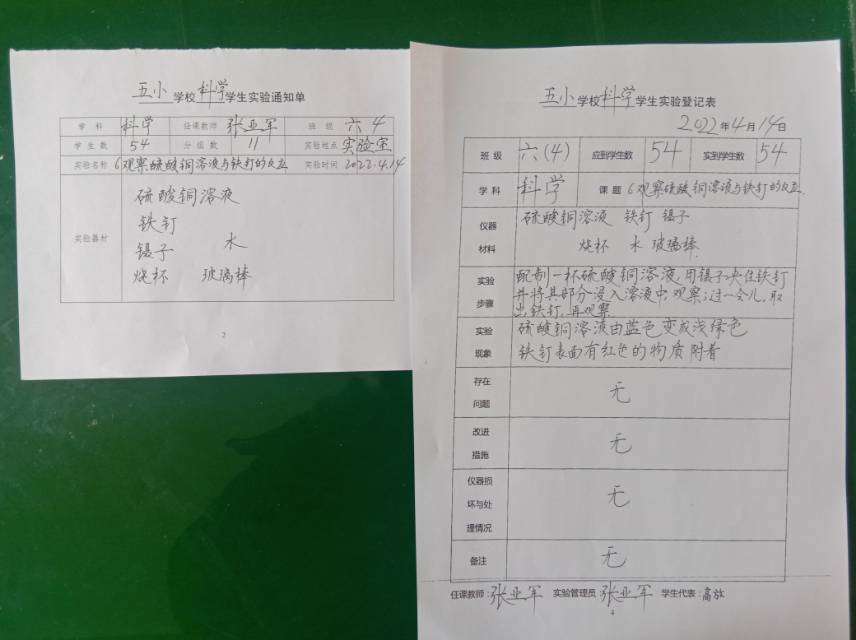 五小学校科学学生实验通知单
学 科 科学 任课教师 张亚军 班 级 六4
学 生 数 54 分 组 数 11 实验地点 实验室
实验名称 6观察硫酸铜溶液与铁钉的反应 实验时间 2022.4.14
实验器材
硫酸铜溶液
铁钉
镊子 水
烧杯 玻璃棒
2
五小学校科学学生实验登记表
2022年4月14日
班 级 六(4) 应到学生数 54 实到学生数 54
学 科 科学 课 题 6观察硫酸铜溶液与铁钉的反应
仪器材料
硫酸铜溶液 铁钉 镊子
烧杯 水 玻璃棒
实验步骤
配制一杯硫酸铜溶液,用镊子夹住铁钉
并将其部分浸入溶液中,观察;过一会儿,取
出铁钉,再观察
实验现象
硫酸铜溶液由蓝色变成浅绿色
铁钉表面有红色的物质附着
存在问题 无
改进措施 无
仪器损坏与处理情况 无
备注 无
任课教师:张亚军 实验管理员:张亚军 学生代表:高放
4